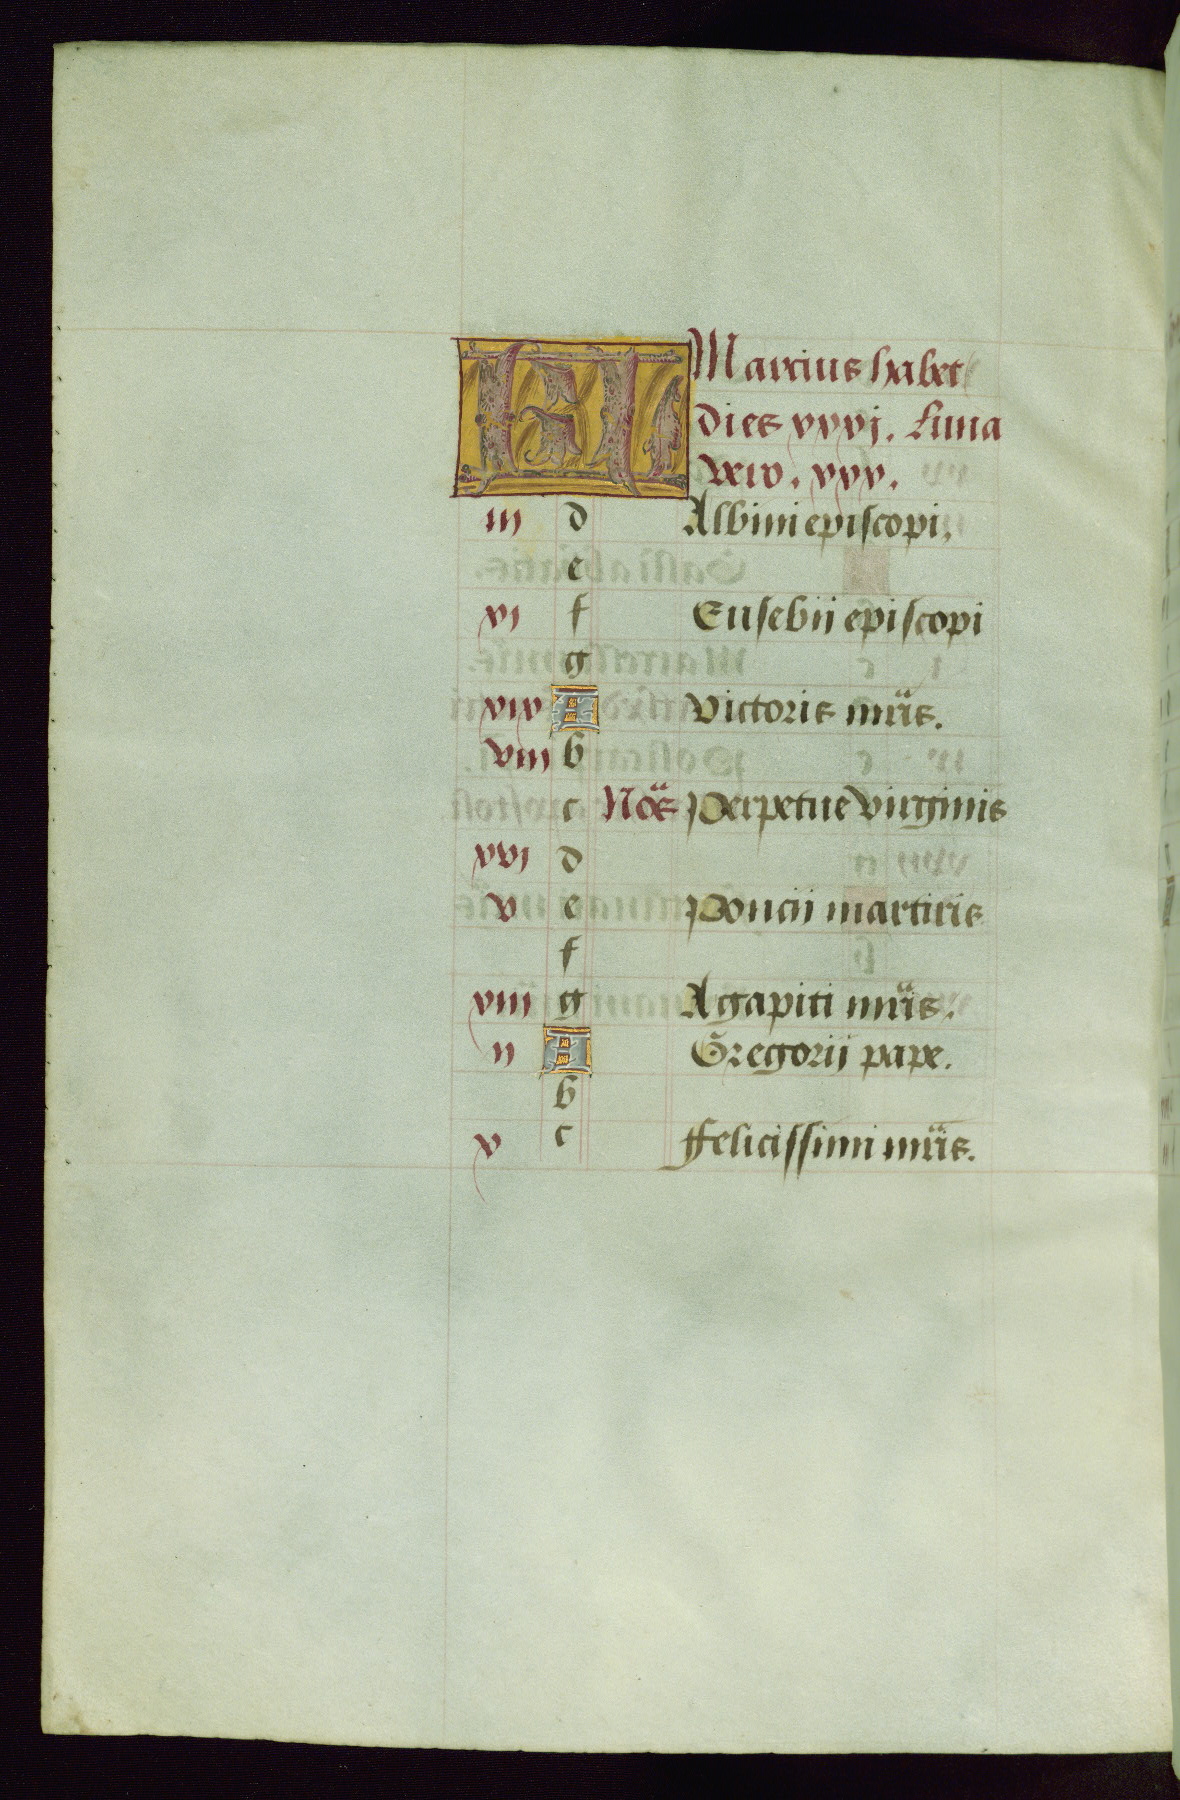 KL Marcius habet
dies xxxj. Luna
vero. xxx.
iii d Albini episcopi.
e
xj f Eusebii episcopi
g
xix A Victoris mr̃is.
viii b
c Noẽs Perpetue virginis
xvj d
v e Poncii martiris
f
xiii g Agapiti mr̃is.
ii A Gregorij pape.
b
x c ffelicissimi mr̃is.